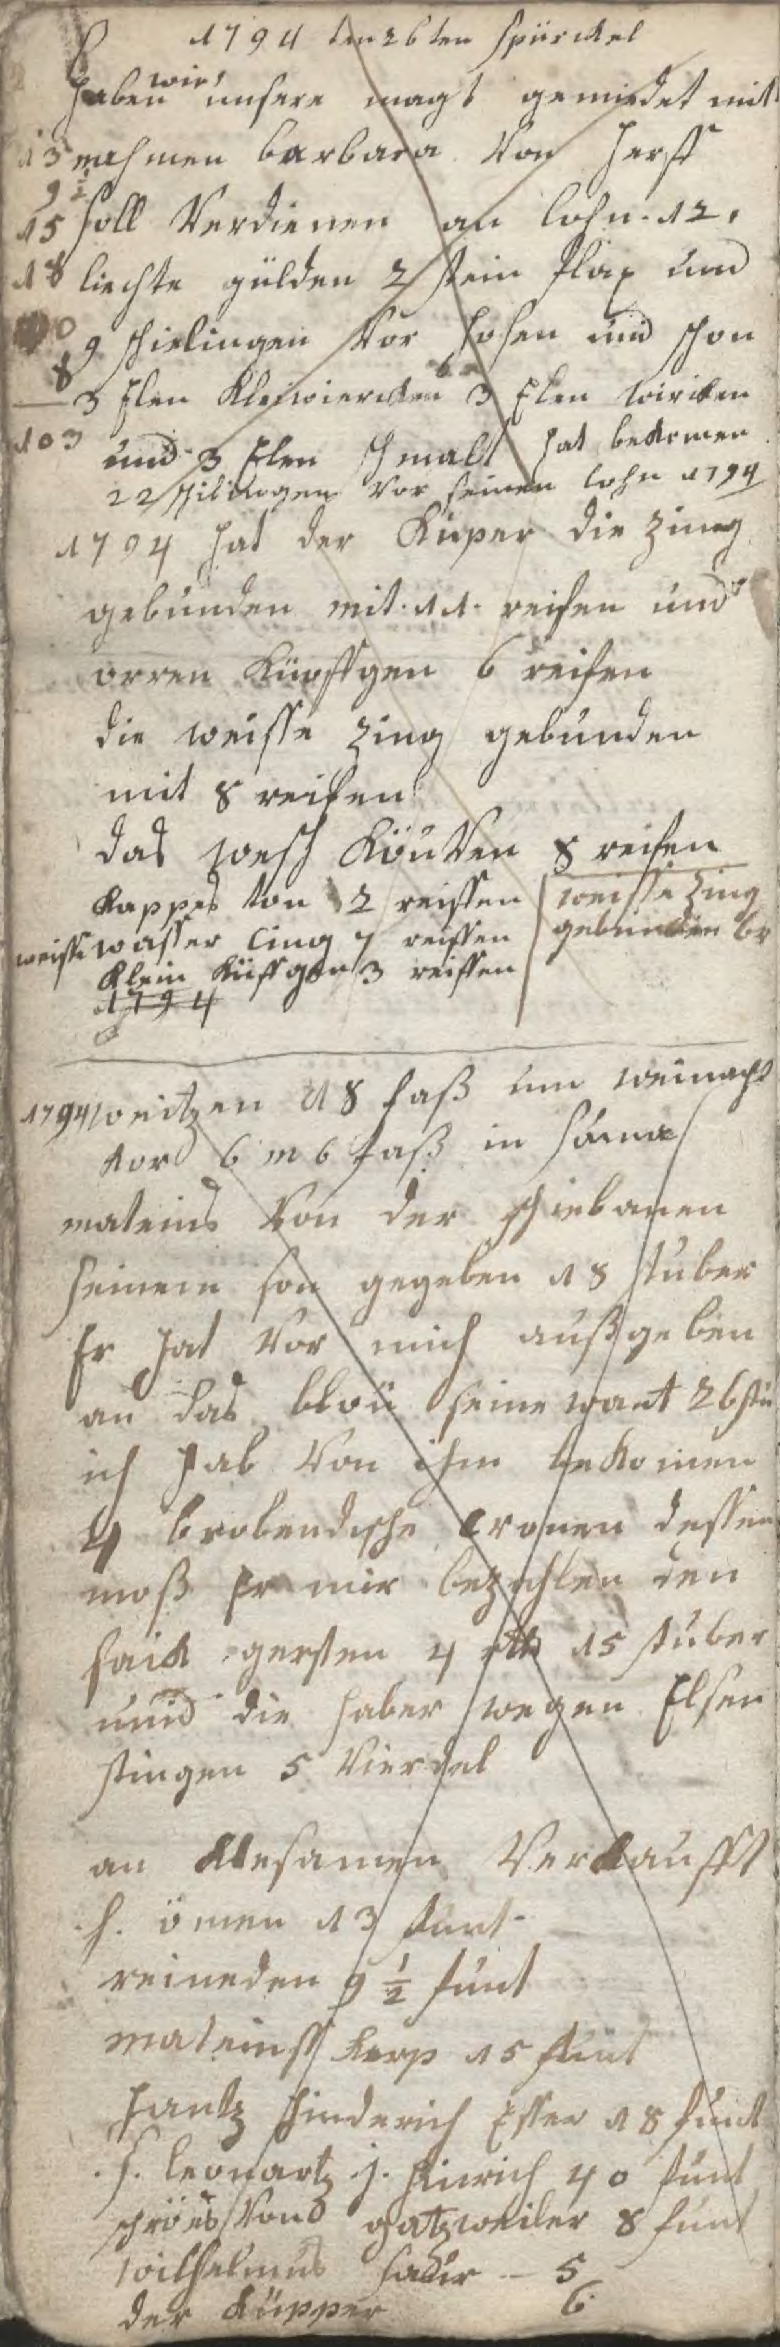 1794 den 26ten Spürckel
haben wir unsere magt gemiedet mit
13 nahmen barbara Von Herst
9 1/2
15 soll Verdienen an lohn 12.
18 liechte gülden 2 stein flax und
40 9 schielingen Vor hosen und schon
8 3 Elen Kleiwiercken 3 Elen wircken
103 und 3 Elen schmalt hat bekomen
22 schilingen Vor seinen lohn 1794
1794 hat der Küper die zing
gebunden mit 11 reifen und
orren Küossgen 6 reifen
die weisse zing gebunden
mit 8 reifen
das wesch Köuven 8 reifen
Kappes ton 2 reissen weisse zing
weisse wasser Cing 7 reissen gebunden
Klein Küssgen 3 reissen
1794
1794 weitzen 18 faß um weinacht
vor 6 m 6 faß in
mateins Von der
seinem son gegeben 18 stüber
Er hat Vor mich außgeben
an das bloü seine want 26 stü
ich hab Von ihm bekomen
4 brobendische Cronen dessen
moß Er mir bezahlen den
sack gersten 4 15 stüber
und die haber wegen Elsen
stingen 5 Vierdel
an Klesamen Verkaufft
h. ömen 13 funt
reineden 9 1/2 funt
mateinss Kerp 15 funt
hantz hinderich Esser 18 funt
h. leonartz j. hinrich 40 funt
schröes Vond gatzweiler 8 funt
wilhelmus - 5
der Küpper 6